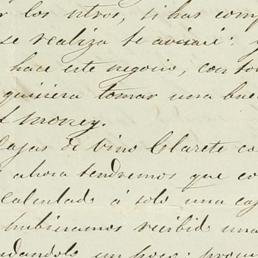 los otros, si has com
se realiza te avisaré: y
hace este negocio, con
quisiera tomar una bue
money.
Cajas de vino Clarete ca
ahora tendremos que co
calculado á solo una ca
hubieramos recibido una
un poco;